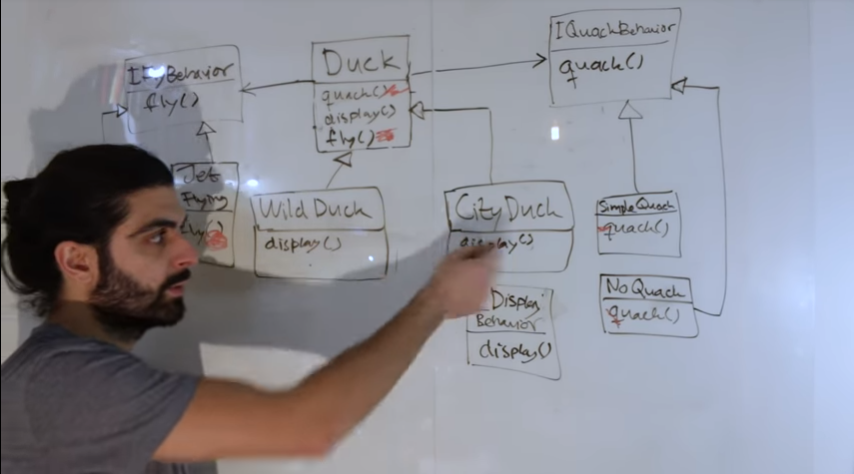 IFlyBehavior
fly()
Duck
quack()
display()
fly()
IQuackBehavior
quack()
Jet
Flying
fly()
WildDuck
display()
CityDuck
display()
SimpleQuack
quack()
Display
Behavior
display()
NoQuack
quack()